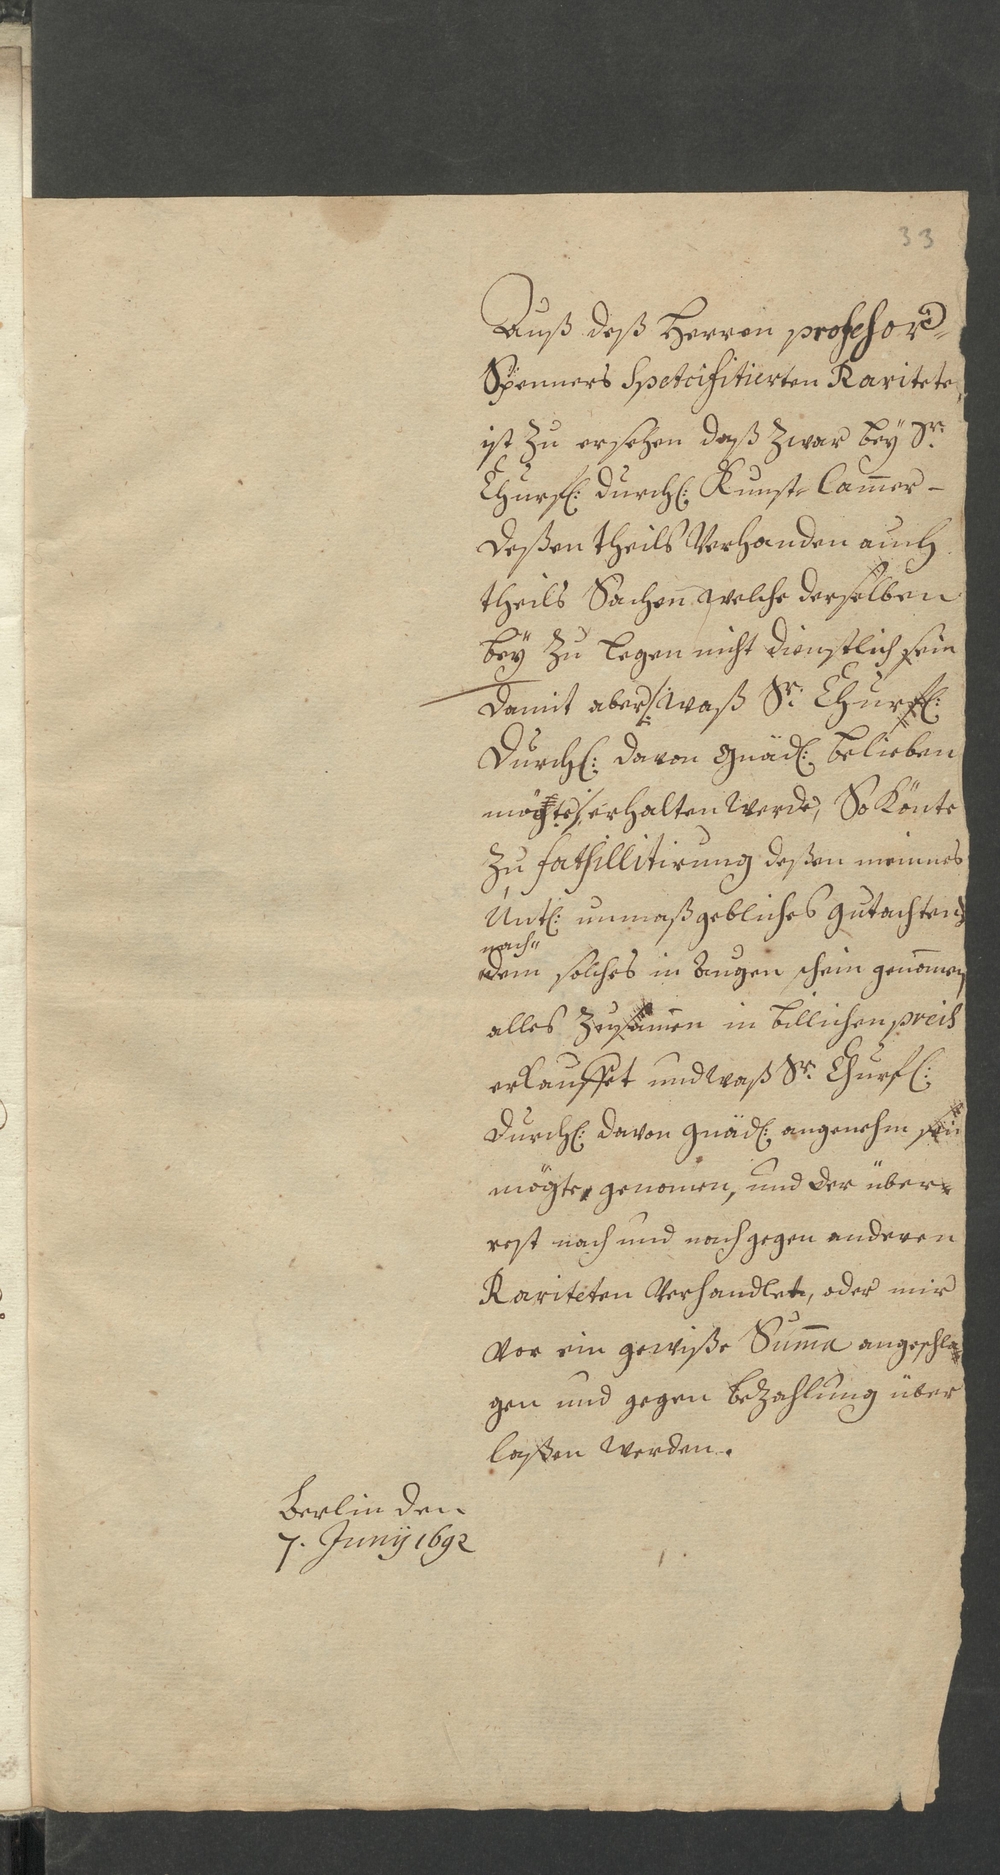 33
Auß deß Herren profeßor
Spenners Spetcifitierten Raritete,
ist zu ersehen daß zwar beÿ Sr:
Churfl: Durchl: Kunst-Cam̄er-
deßen theils Verhanden auch
theils Sachen welche derselben
beÿ zu legen nicht dienstlich sein
damit aber/: waß Sr: Churfl:
Durchl: davon gnädl: belieben
mögte:/ erhalten werde, So könte
zu fatsillitirung deßen meines
Untl: unmaßgebliches gutachten
nach
dem solches in augen schein genom̄en
alles zusam̄en in billichen preiß
erkauffet und waß Sr: Churfl:
Durchl: davon gnädl: angenehm sein
mögte, genom̄en, und der über-
rest nach und nach gegen anderen
Rariteten Verhandlet, oder mir
vor ein gewiße Sum̄a angeschla-
gen und gegen bezahlung über
laßen werden.
Berlin den
7. Junÿ 1692